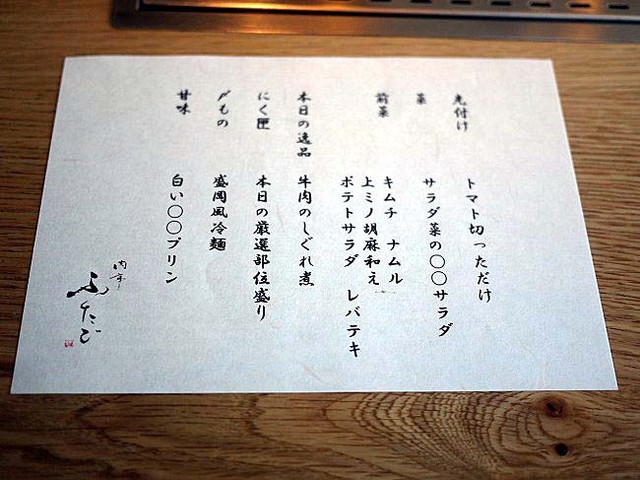 先付け　トマト切っただけ
菜　サラダ菜の〇〇サラダ
前菜　キムチ　ナムル
上ミノ胡麻和え
ポテトサラダ　レバテキ
本日の逸品　牛肉のしぐれ煮
にく匣　本日の厳選部位盛り
〆もの　盛岡風冷麺
甘味　白い〇〇プリン
肉亭
ふたご